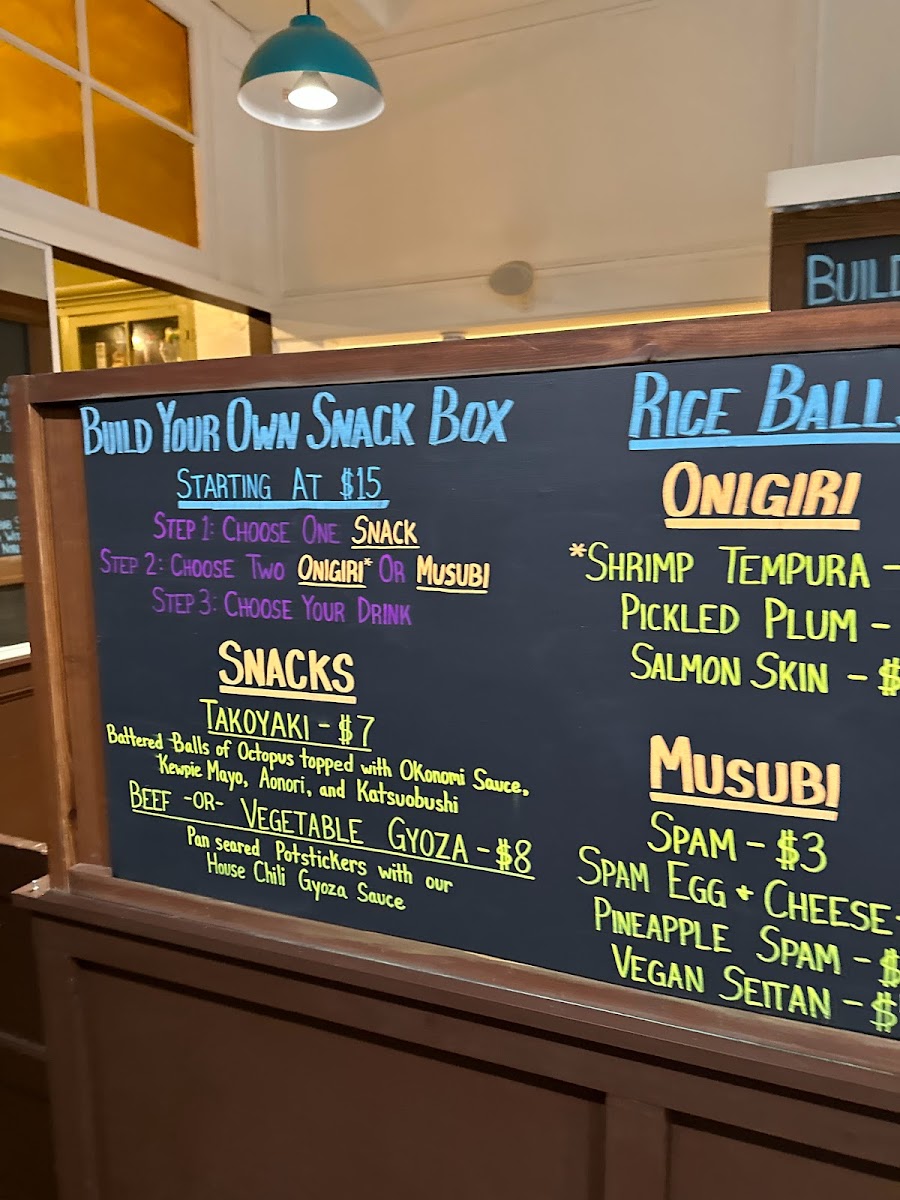 BUILD YOUR OWN SNACK BOX
STARTING AT $15
STEP 1: CHOOSE ONE SNACK
STEP 2: CHOOSE TWO ONIGIRI* OR MUSUBI
STEP 3: CHOOSE YOUR DRINK
SNACKS
TAKOYAKI - $7
Battered Balls of Octopus topped with OKonomi Sauce,
Kewpie Mayo, Aonori, and Katsuobushi
BEEF -OR- VEGETABLE GYOZA - $8
Pan seared Potstickers with our
House Chili Gyoza Sauce
RICE BALL
ONIGIRI
*SHRIMP TEMPURA -
PICKLED PLUM -
SALMON SKIN - $
MUSUBI
SPAM - $3
SPAM EGG + CHEESE -
PINEAPPLE SPAM - $
VEGAN SEITAN - $
BUILD